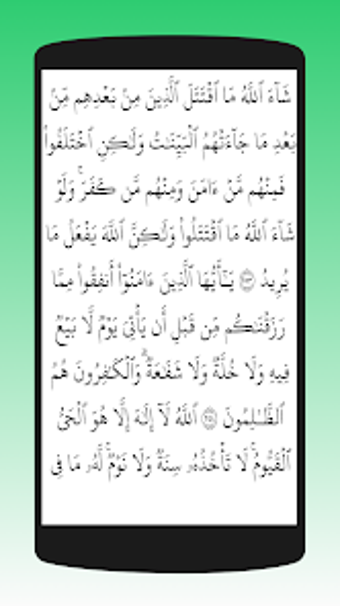 شَآءَ ٱللَّهُ مَا ٱقْتَتَلَ ٱلَّذِينَ مِنۢ بَعْدِهِم مِّنۢ
بَعْدِ مَا جَآءَتْهُمُ ٱلْبَيِّنَـٰتُ وَلَـٰكِنِ ٱخْتَلَفُوا۟
فَمِنْهُم مَّنْ ءَامَنَ وَمِنْهُم مَّن كَفَرَ ۚ وَلَوْ
شَآءَ ٱللَّهُ مَا ٱقْتَتَلُوا۟ وَلَـٰكِنَّ ٱللَّهَ يَفْعَلُ مَا
يُرِيدُ ۝٢٥٣ يَـٰٓأَيُّهَا ٱلَّذِينَ ءَامَنُوٓا۟ أَنفِقُوا۟ مِمَّا
رَزَقْنَـٰكُم مِّن قَبْلِ أَن يَأْتِىَ يَوْمٌ لَّا بَيْعٌ
فِيهِ وَلَا خُلَّةٌ وَلَا شَفَـٰعَةٌ ۗ وَٱلْكَـٰفِرُونَ هُمُ
ٱلظَّـٰلِمُونَ ۝٢٥٤ ٱللَّهُ لَآ إِلَـٰهَ إِلَّا هُوَ ٱلْحَىُّ
ٱلْقَيُّومُ ۚ لَا تَأْخُذُهُۥ سِنَةٌ وَلَا نَوْمٌ ۚ لَّهُۥ مَا فِى